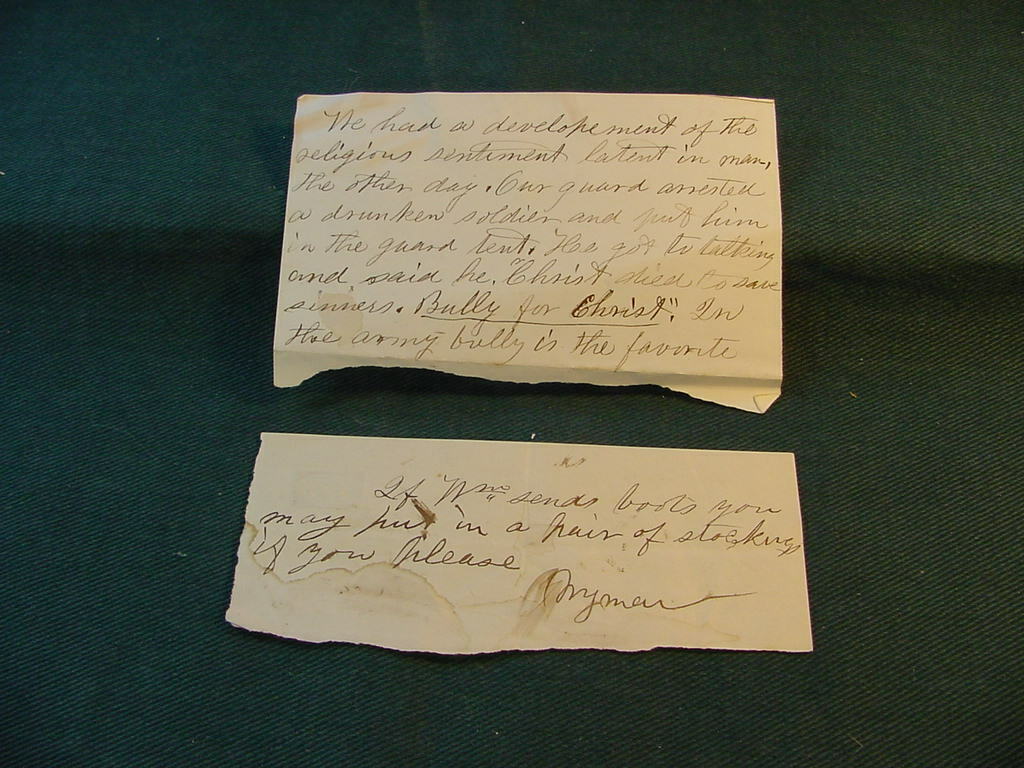 We had a developement of the
religious sentiment latent in man,
the other day. Our guard arrested
a drunken soldier and put him
in the guard tent. He got to talking
and said he. "Christ died to save
sinners. Bully for Christ". In
the army bully is the favorite
If Wm sends boots you
may put in a pair of stockings
if you please